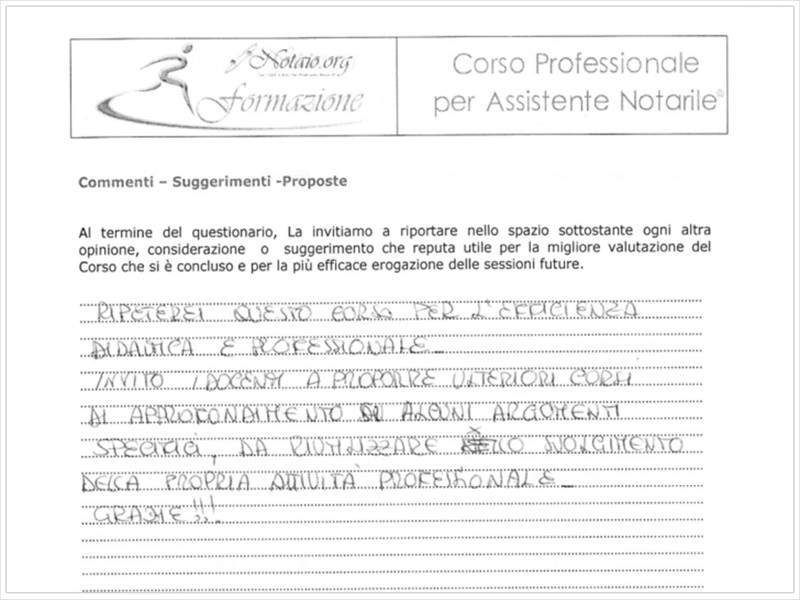 Notaio.org
Formazione
Corso Professionale
per Assistente Notarile®
Commenti – Suggerimenti -Proposte
Al termine del questionario, La invitiamo a riportare nello spazio sottostante ogni altra
opinione, considerazione o suggerimento che reputa utile per la migliore valutazione del
Corso che si è concluso e per la più efficace erogazione delle sessioni future.
RIPETEREI QUESTO CORSO PER L'EFFICIENZA
DIDATTICA E PROFESSIONALE
INVITO I DOCENTI A PROPORRE ULTERIORI CORSI
DI APPROFONDIMENTO SU ALCUNI ARGOMENTI
SPECIFICI, DA RIUTILIZZARE NELLO SVOLGIMENTO
DELLA PROPRIA ATTIVITÀ PROFESSIONALE
GRAZIE!!!